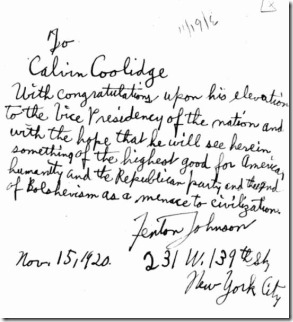 To
Calvin Coolidge
With congratulations upon his elevation
to the Vice Presidency of the nation and
with the hope that he will see herein
something of the highest good for America,
humanity and the Republican party, and the end
of Bolshevism as a menace to civilization.
Fenton Johnson
Nov. 15, 1920. 231 W. 139th St,
New York City